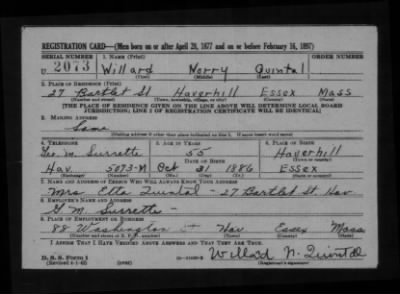 REGISTRATION CARD—(Men born on or after April 28, 1877 and on or before February 16, 1897)
SERIAL NUMBER 1. NAME (Print) ORDER NUMBER
U 2073 Willard Merry Quintal
(First) (Middle) (Last)
2. PLACE OF RESIDENCE (Print)
27 Bartlet St Haverhill Essex Mass
(Number and street) (Town, township, village, or city) (County) (State)
[THE PLACE OF RESIDENCE GIVEN ON THE LINE ABOVE WILL DETERMINE LOCAL BOARD
JURISDICTION; LINE 2 OF REGISTRATION CERTIFICATE WILL BE IDENTICAL]
3. MAILING ADDRESS
Same
[Mailing address if other than place indicated on line 2. If same insert word same]
4. TELEPHONE 5. AGE IN YEARS 6. PLACE OF BIRTH
Geo. M. Surrette 55 Haverhill
DATE OF BIRTH (Town or county)
Hav 5073-M Oct 21 1886 Essex
(Exchange) (Number) (Mo.) (Day) (Yr.) (State or country)
7. NAME AND ADDRESS OF PERSON WHO WILL ALWAYS KNOW YOUR ADDRESS
Mrs Etta Quintal - 27 Bartlet St Hav
8. EMPLOYER'S NAME AND ADDRESS
G M. Surrette -
9. PLACE OF EMPLOYMENT OR BUSINESS
88 Washington st Hav Essex Mass
(Number and street or R. F. D. number) (Town) (County) (State)
I AFFIRM THAT I HAVE VERIFIED ABOVE ANSWERS AND THAT THEY ARE TRUE.
D. S. S. Form 1 Willard M. Quintal
(Revised 4-1-42) (Registrant's signature)